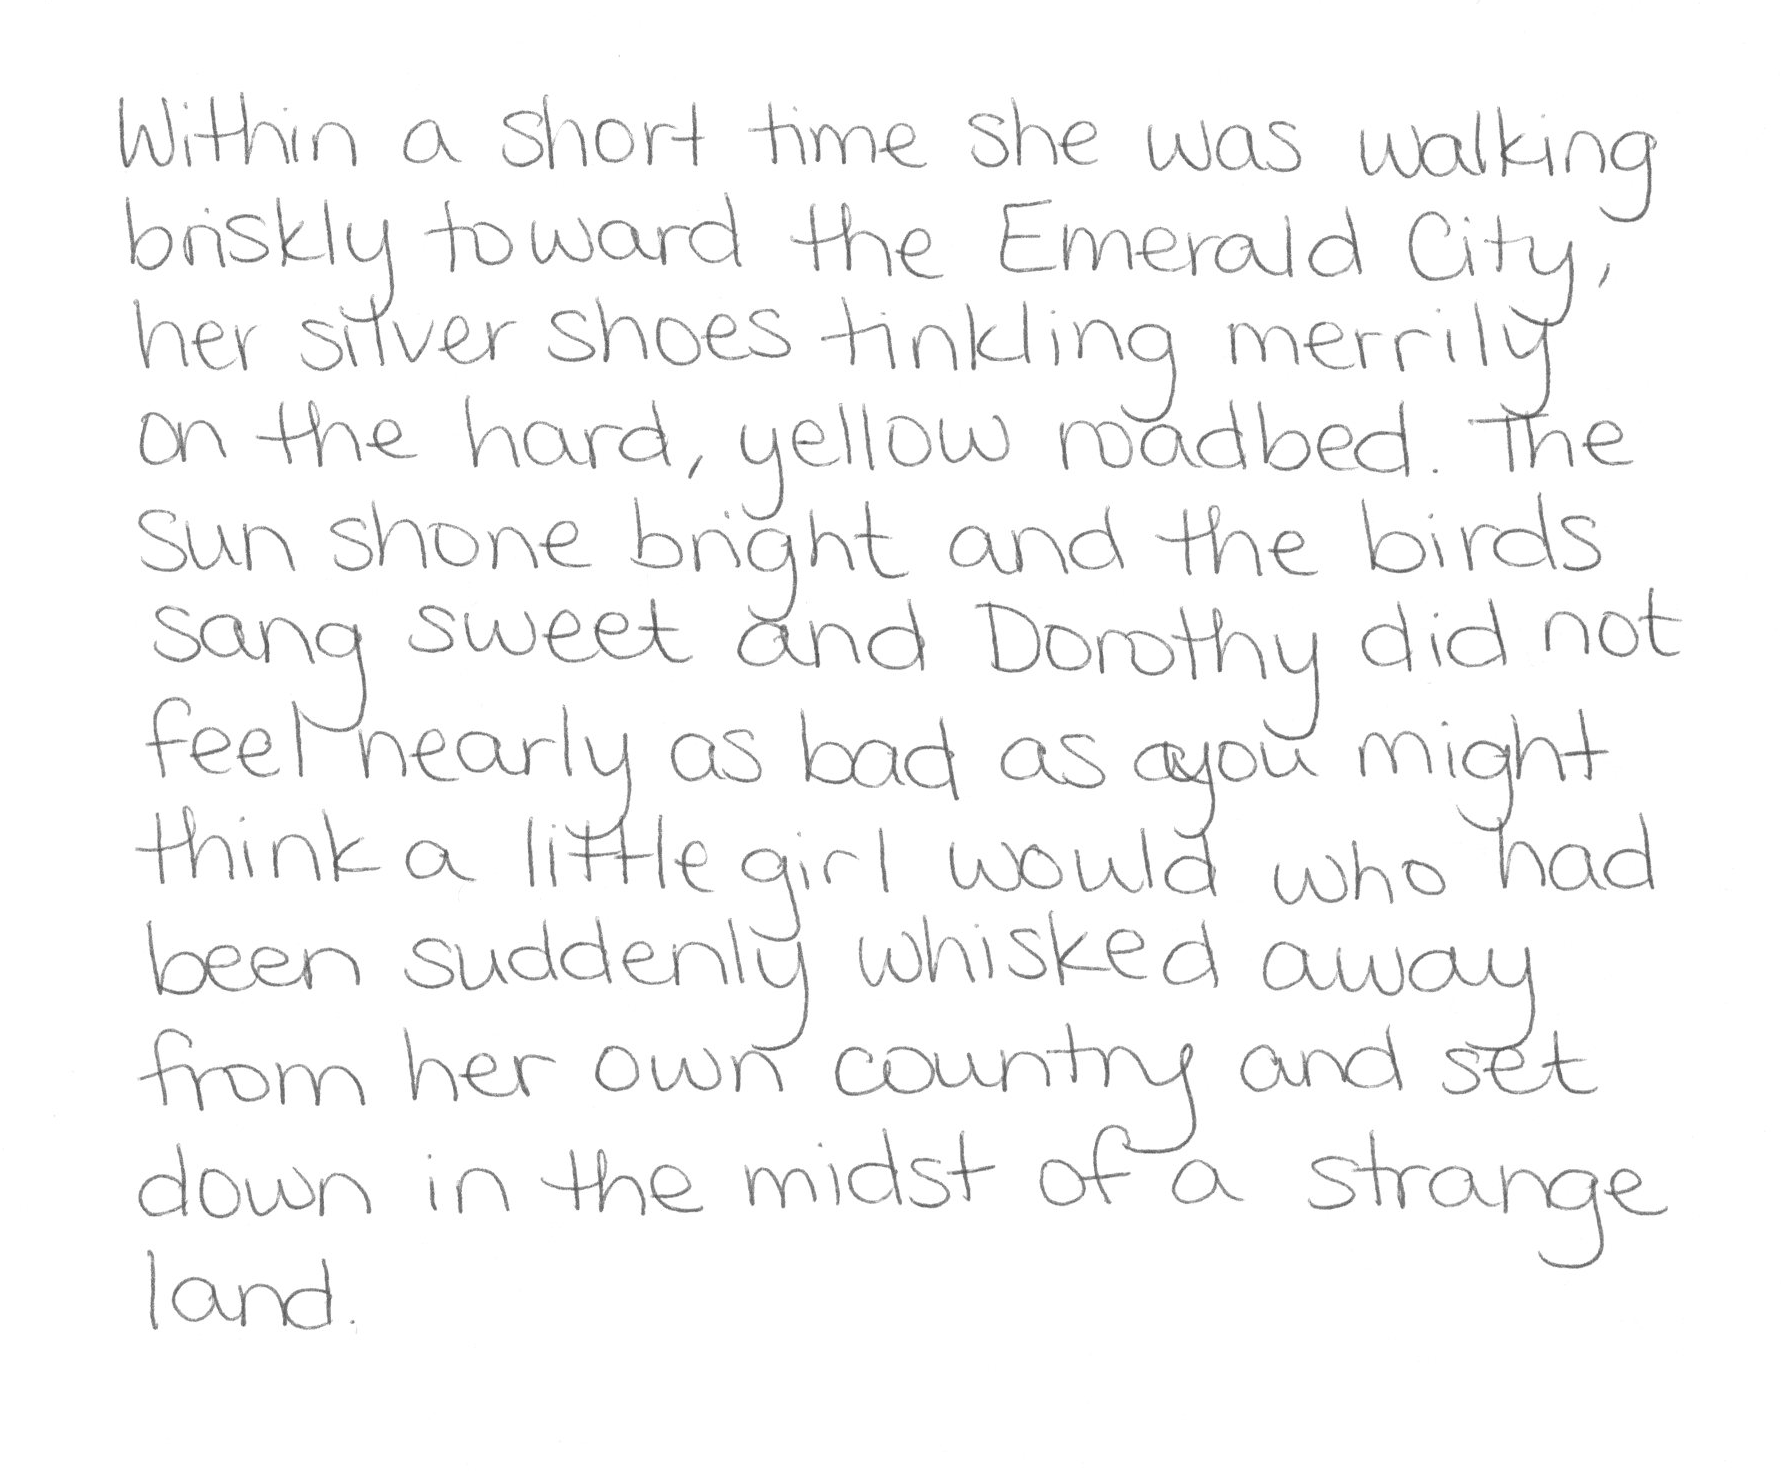 Within a short time she was walking
briskly toward the Emerald City,
her silver shoes tinkling merrily
on the hard, yellow roadbed. The
sun shone bright and the birds
sang sweet and Dorothy did not
feel nearly as bad as you might
think a little girl would who had
been suddenly whisked away
from her own country and set
down in the midst of a strange
land.